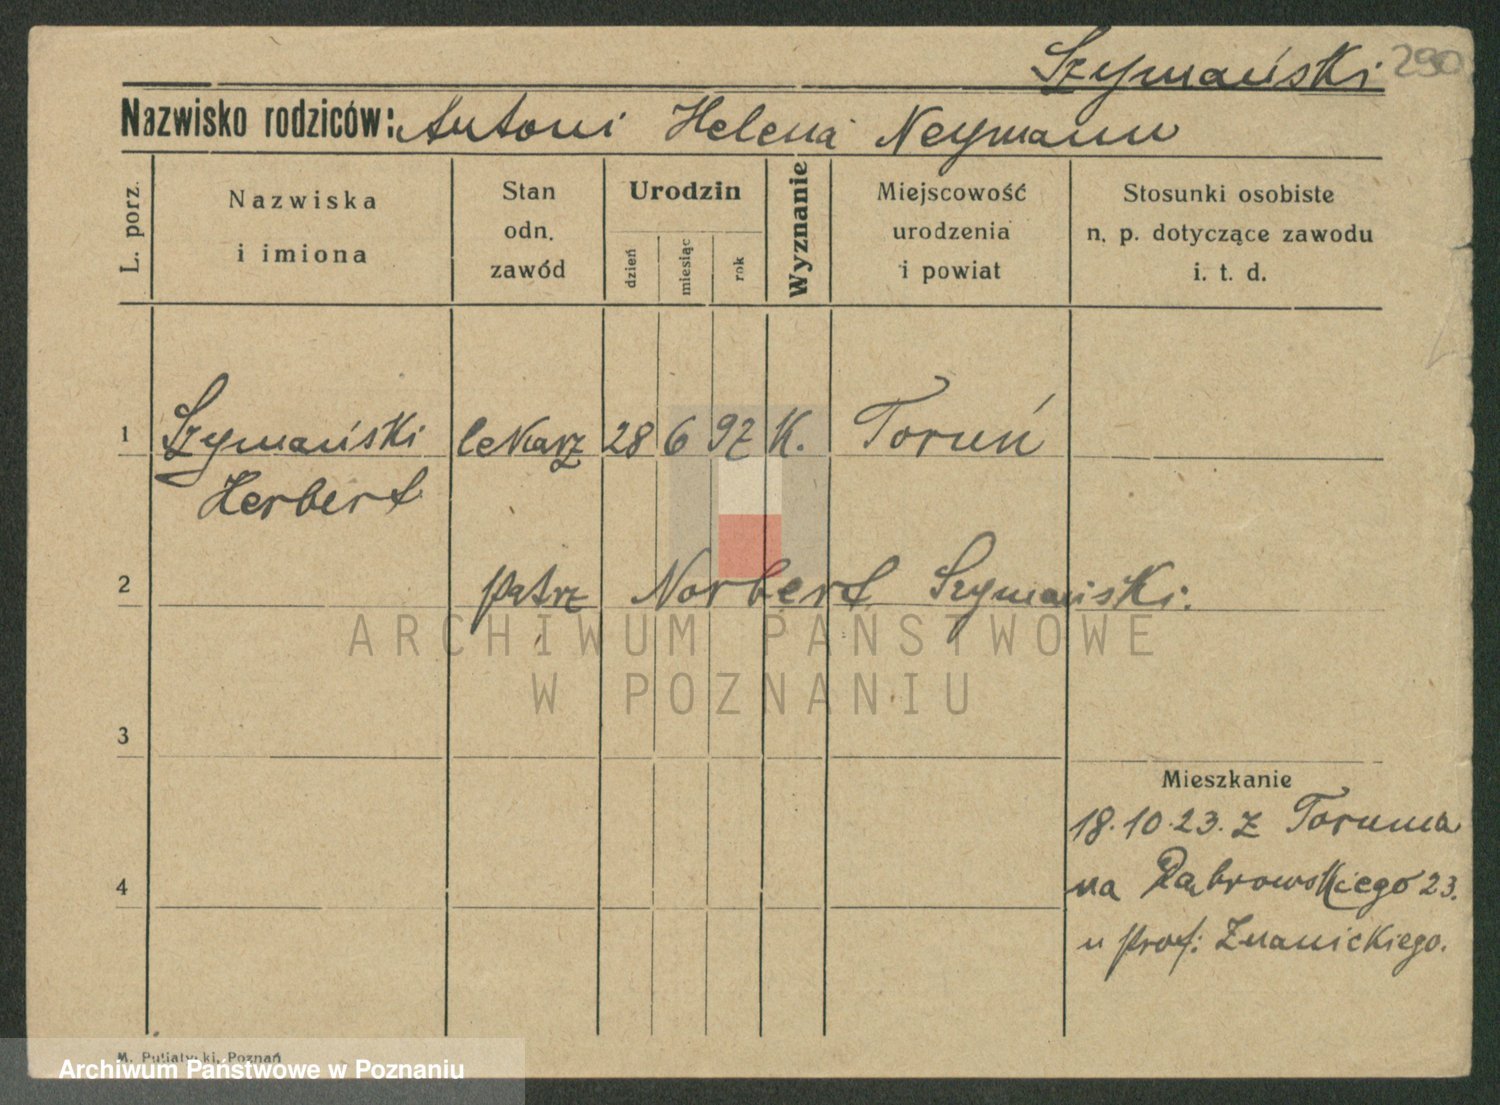 Szymański 290
Nazwisko rodziców: Antoni Helena Neymann
L. porz.
Nazwiska
i imiona
Stan
odn.
zawód
Urodzin
dzień
miesiąc
rok
Wyznanie
Miejscowość
urodzenia
i powiat
Stosunki osobiste
n. p. dotyczące zawodu
i. t. d.
1 Szymański lekarz 28 6 97 K. Toruń
Herbert
2 patrz Norbert Szymański.
ARCHIWUM PAŃSTWOWE
W POZNANIU
3
Mieszkanie
18.10.23. z Torunia
4 na Dąbrowskiego 23.
u prof: Znanickiego.
M. Putiatycki, Poznań
Archiwum Państwowe w Poznaniu